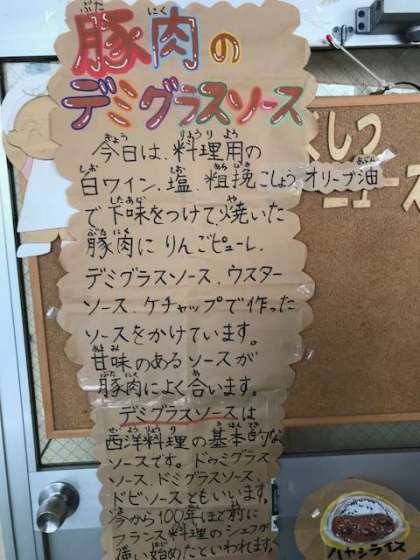 豚肉の
デミグラスソース
今日は、料理用の
白ワイン、塩、粗挽こしょう、オリーブ油
で下味をつけて、焼いた
豚肉に りんごピューレ、
デミグラスソース、ウスター
ソース、ケチャップで作った
ソースをかけています。
甘味のあるソースが
豚肉によく合います。
デミグラスソースは
西洋料理の基本的な
ソースです。ドゥミグラス
ソース、ドミグラスソース、
ドビソースともいいます。
今から100年ほど前に
フランス料理のシェフが
使い始めたといわれます。
しつ
ニュース
ハヤシライス